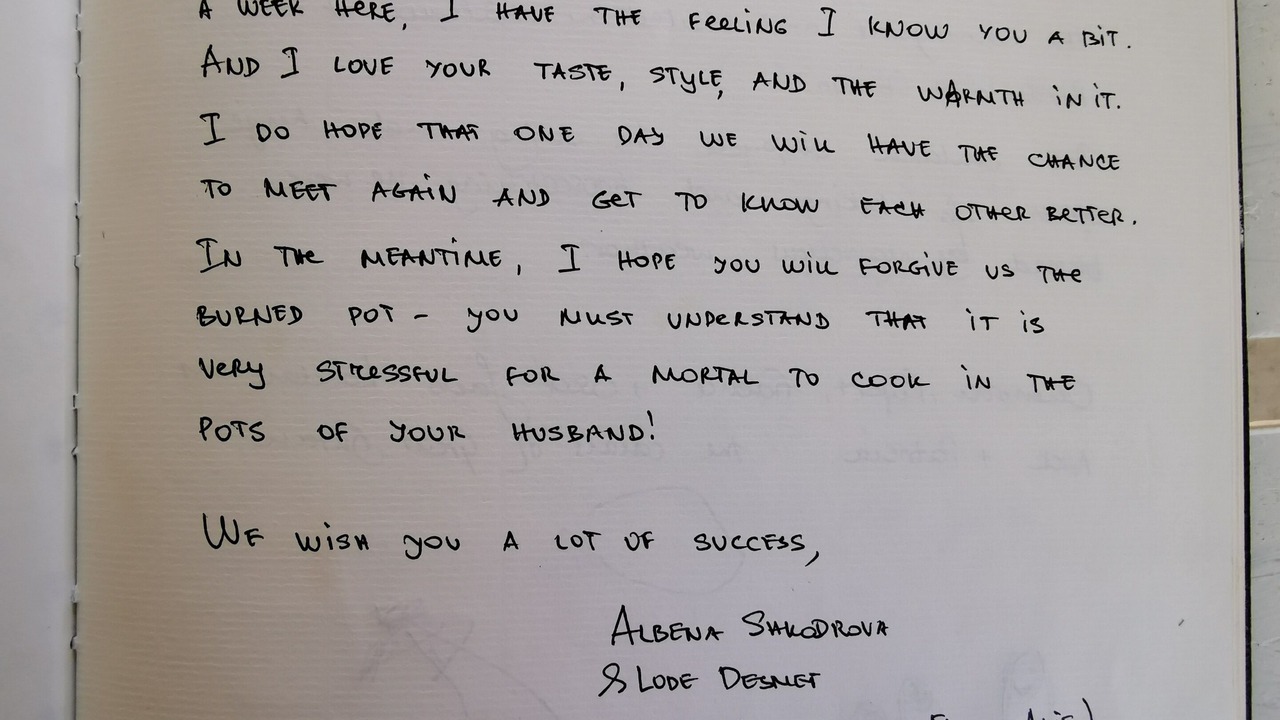 A WEEK HERE, I HAVE THE FEELING I KNOW YOU A BIT.
AND I LOVE YOUR TASTE, STYLE, AND THE WARMTH IN IT.
I DO HOPE THAT ONE DAY WE WILL HAVE THE CHANCE
TO MEET AGAIN AND GET TO KNOW EACH OTHER BETTER.
IN THE MEANTIME, I HOPE YOU WILL FORGIVE US THE
BURNED POT - YOU MUST UNDERSTAND THAT IT IS
VERY STRESSFUL FOR A MORTAL TO COOK IN THE
POTS OF YOUR HUSBAND!
WE WISH YOU A LOT OF SUCCESS,
ALBENA SHKODROVA
& LODE DESMET